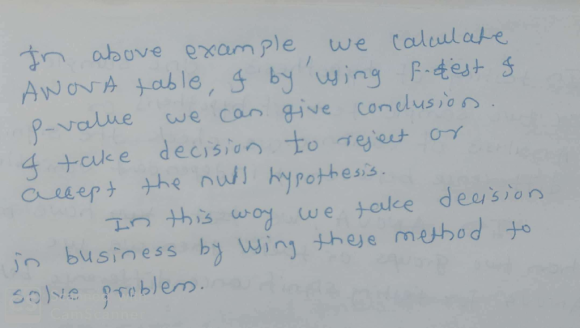 In above example, we calculate
ANOVA table, & by using F-test &
p-value we can give conclusion.
& take decision to reject or
accept the null hypothesis.
In this way we take decision
in business by using these method to
solve problem.